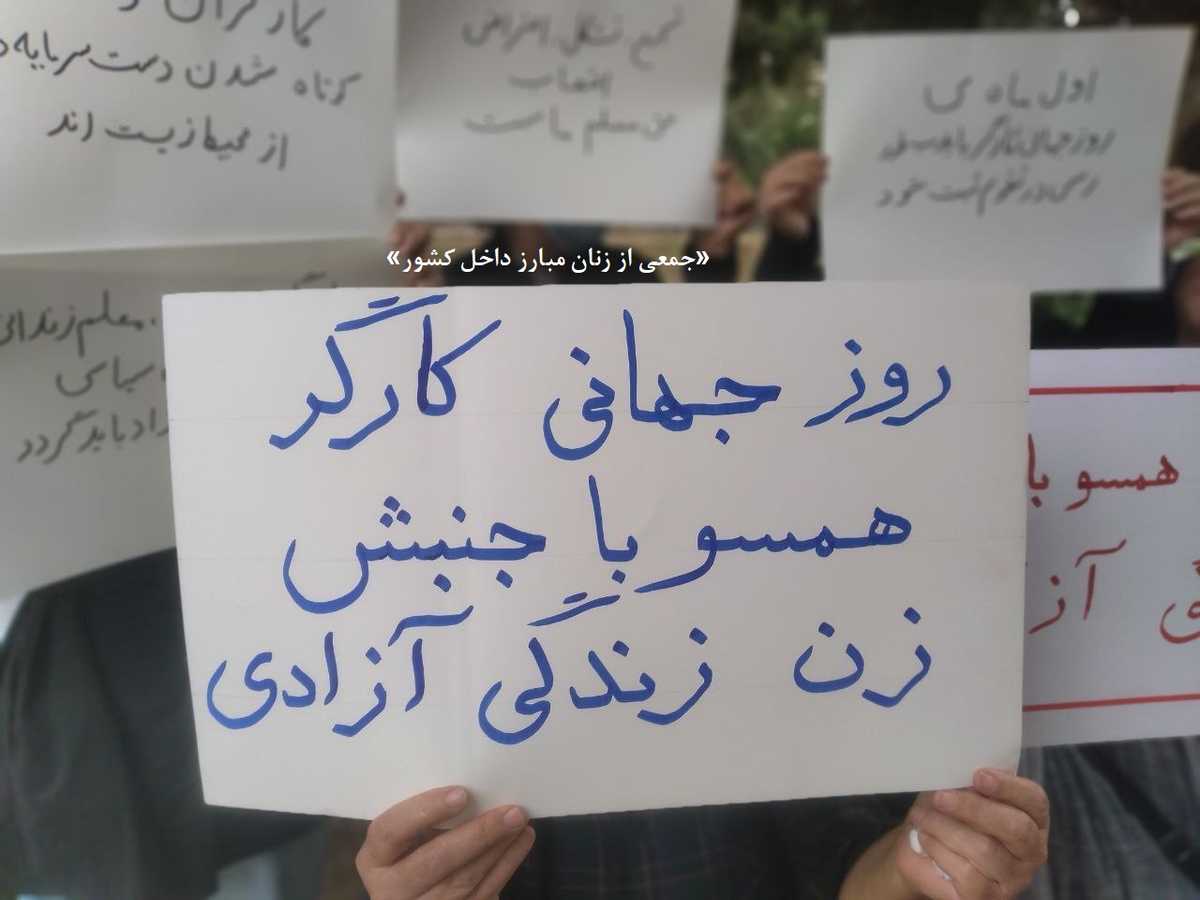 کارگران
کوتاه شدن دست سرمایه
از محیط زیست اند
تجمع تشکل اعتراض
اعتصاب
حق مسلم ماست
اول ماه می
روز جهانی کارگر باید
رسمی در تقویم ثبت شود
«جمعی از زنان مبارز داخل کشور»
معلم زندانی
سیاسی
باید گردد
روز جهانی کارگر
همسو با جنبش
زن زندگی آزادی
همسو با